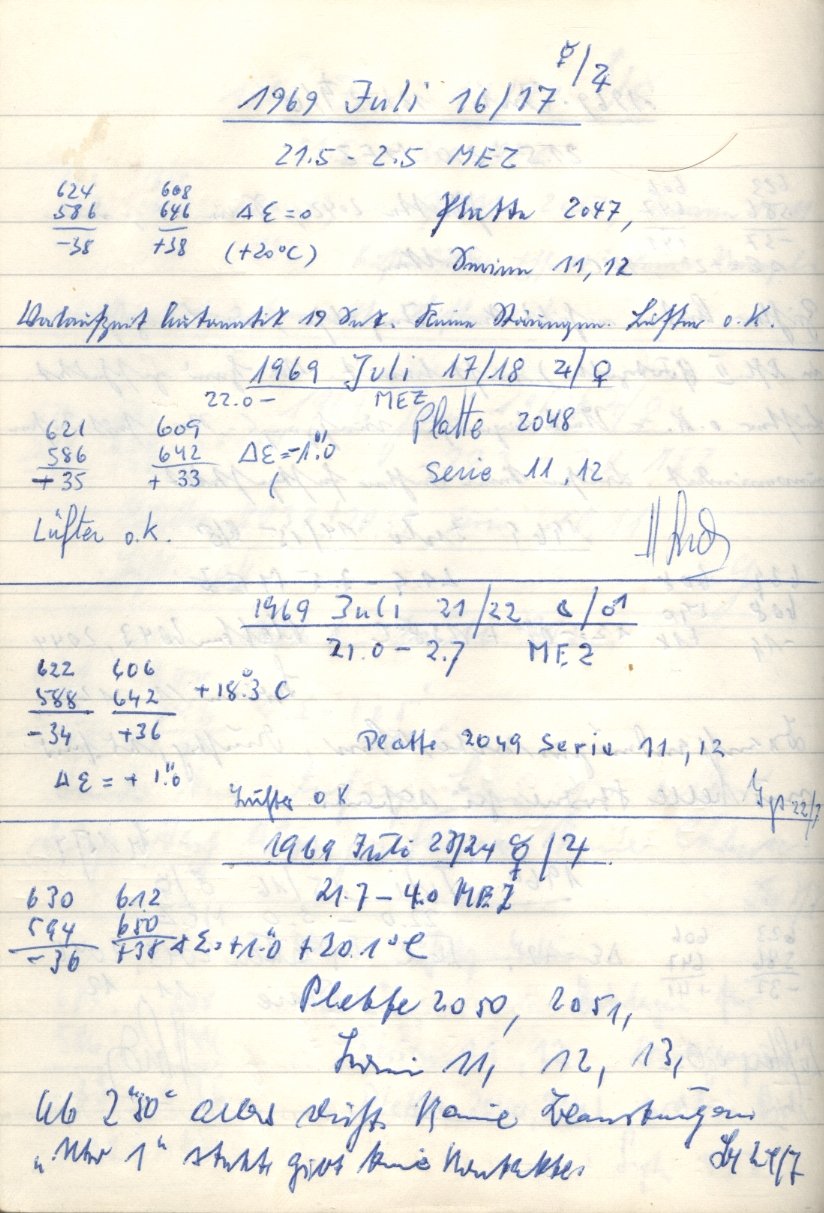 1969 Juli 16/17 ☿/♃
21.5 - 2.5 MEZ
624 608
586 646 Δε = 0 Platte 2047,
-38 +38 (+20°C) Serien 11, 12
Vorlaufzeit Automatik 19 Sek. Keine Störungen. Lüfter o.K.
1969 Juli 17/18 ♃/♀
22.0 - MEZ
621 609 Platte 2048
586 642 Δε = -1."0 Serie 11, 12
+35 +33 (
Lüfter o.K.
1969 Juli 21/22 /♂
21.0 - 2.7 MEZ
622 606
588 642 +18.°3 C
-34 +36 Platte 2049 Serie 11, 12
Δε = + 1."0
Lüfter o K 22/7
1969 Juli 23/24 ☿/♃
21.7 - 4.0 MEZ
630 612
594 650
-36 +38 Δε = +1."0 +20.1°C
Platte 2050, 2051,
Serien 11, 12, 13,
Ab 2 50 Keine
"Uhr 1" gibt keine Kontakte. 24/7